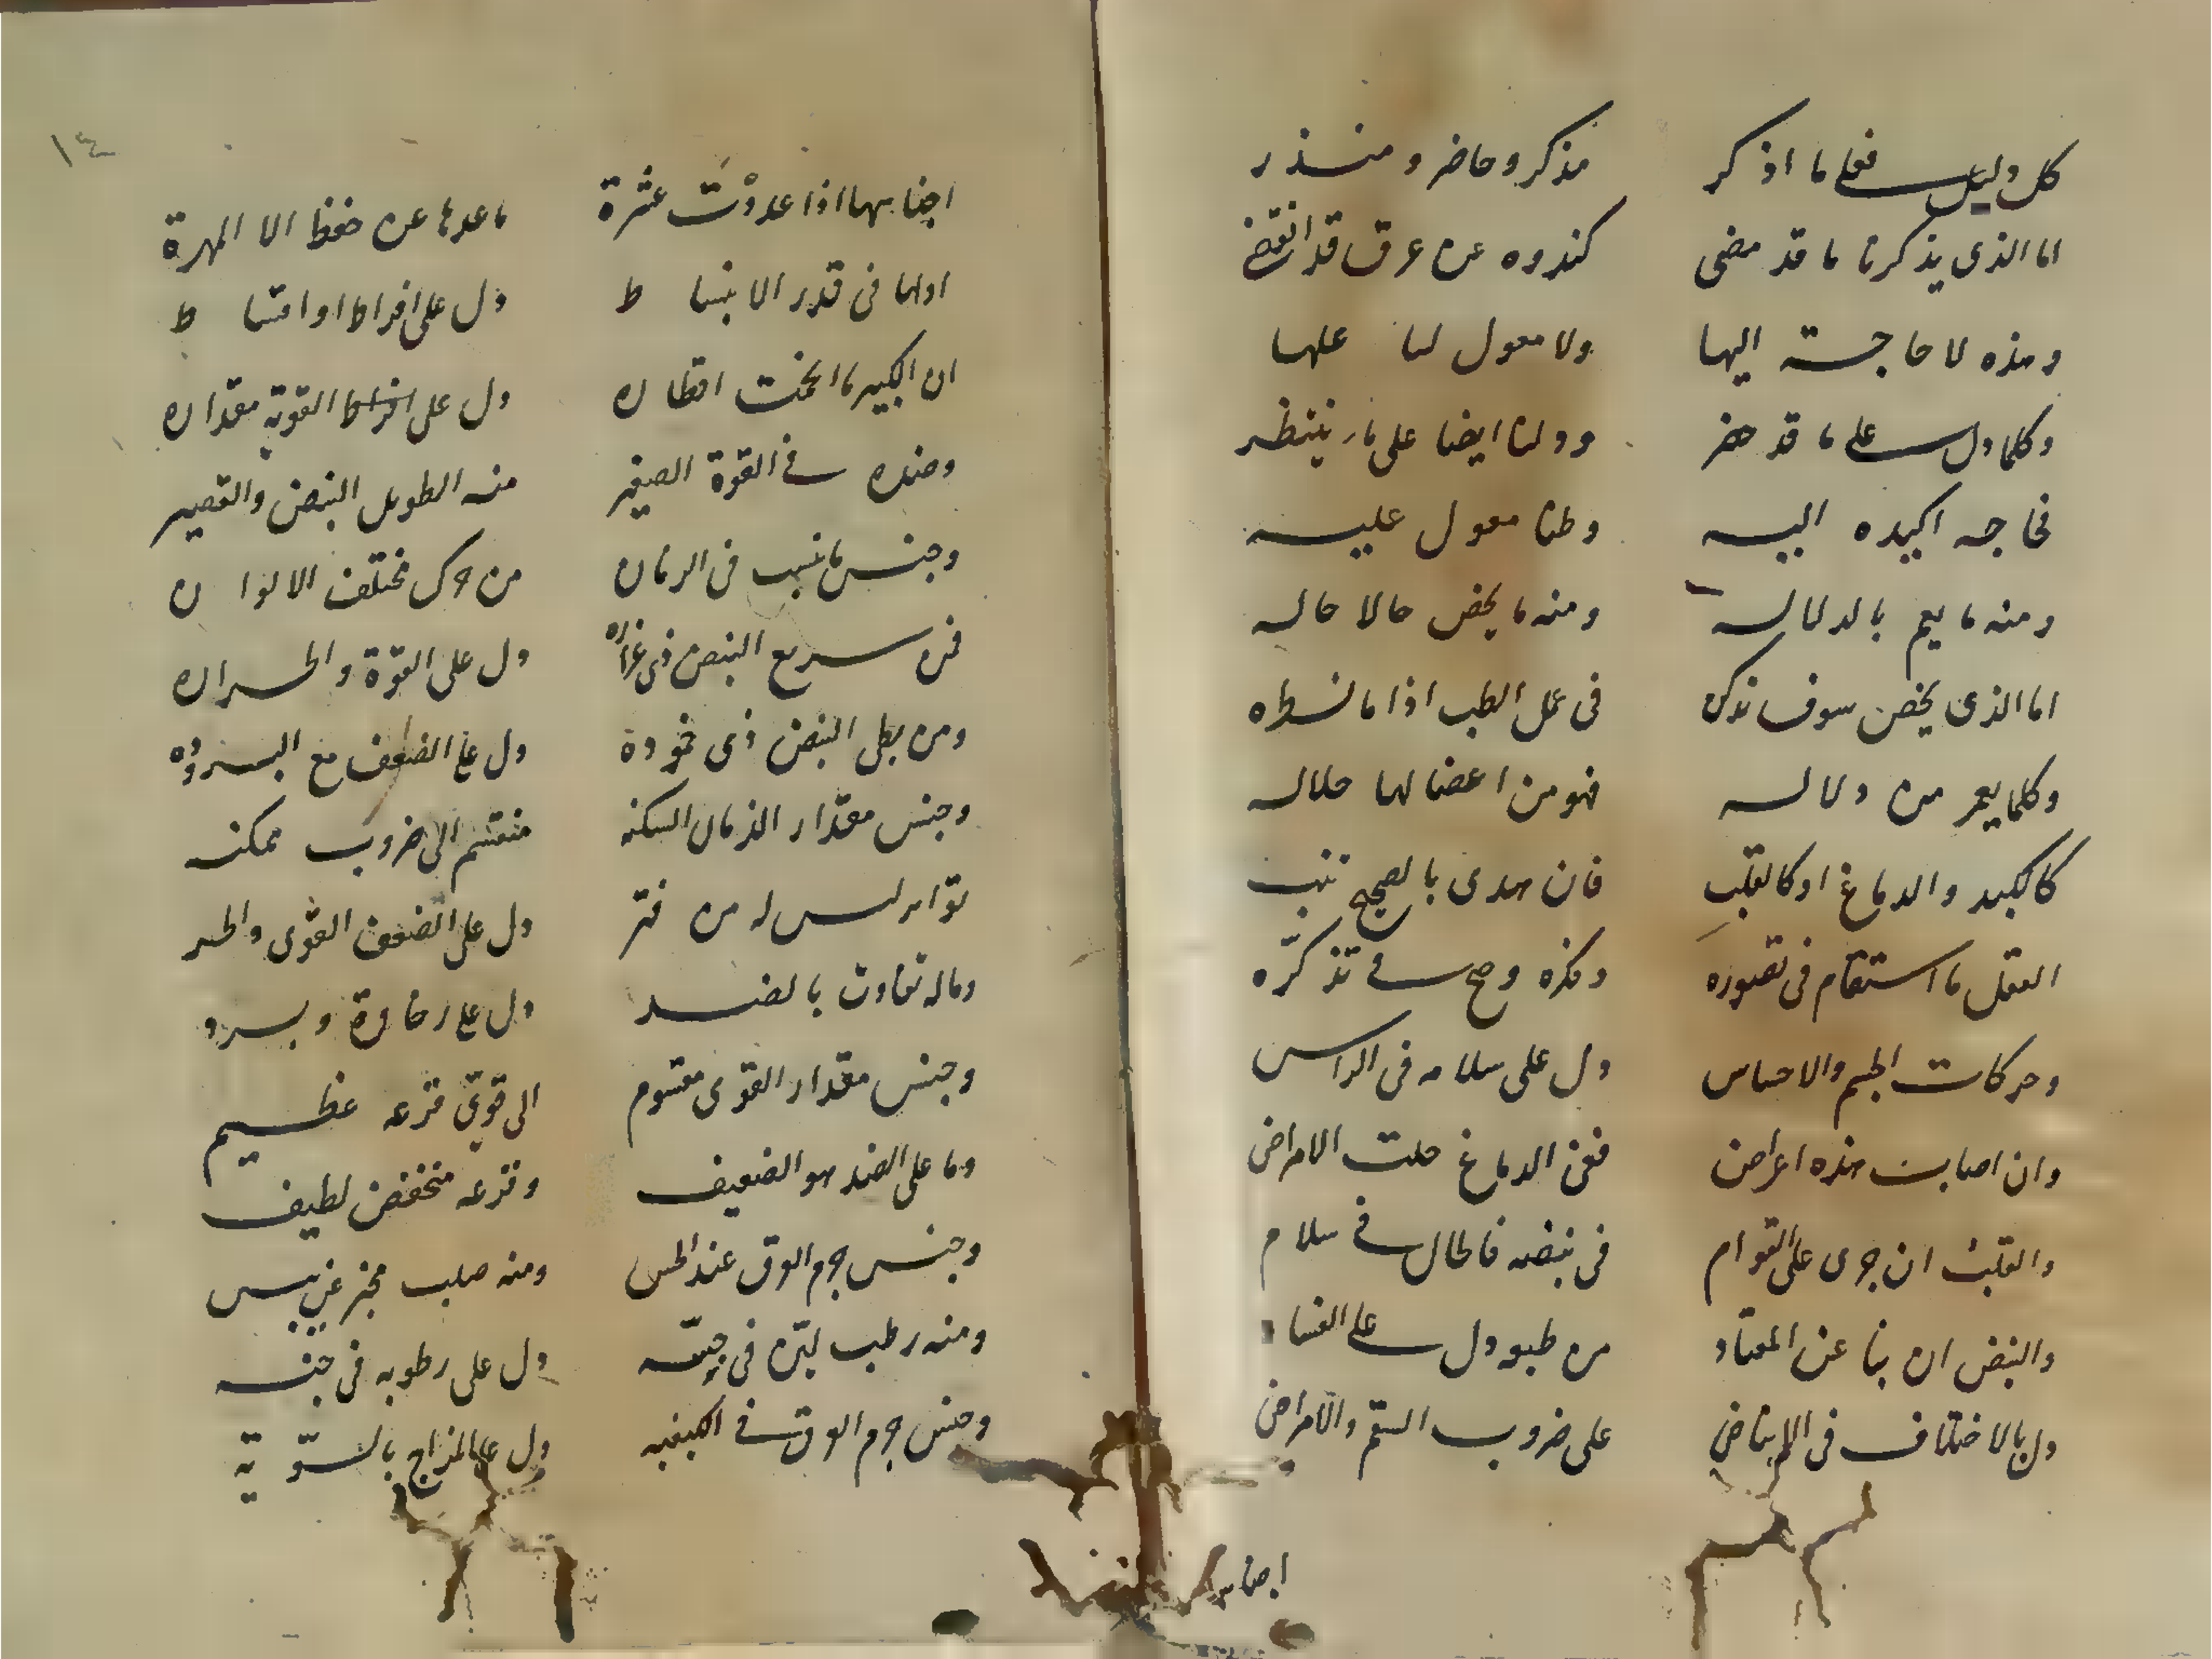 كل دليل فعلى ما اذكر مذكر وحاضر ومنذر
اما الذى يذكرنا ما قد مضى كندوه عن عرق قد انقضى
وهذه لا حاجة اليها ولا معول لنا عليها
وكلما دل على ما قد حضر ودلنا ايضا على ما ينتظر
فحاجه اكيده اليه وطنا معول عليه
ومنه ما يعم بالدلاله ومنه ما يخص حالا حاله
اما الذى يخص سوف نذكره فى عمل الطب اذا ما نسطره
وكلما يعم من دلاله فهو من اعضا لها جلاله
كالكبد والدماغ او كالقلب فان هدى بالصحيح تنب
العقل ما استقام فى تصوره وفكره وصح فى تذكره
وحركات الجسم والاحساس دل على سلامه فى الراس
وان اصابت هذه اعراض ففى الدماغ حلت الامراض
والقلب ان جرى على القوام فى نبضه فالحال فى سلام
والنبض ان نبا عن المعتاد من طبعه دل على الفساد
دل بالاختلاف فى الانباض على ضروب السقم والامراض
اجنا
١٤
اجناسها اذا عددت عشرة ما عدها عن حفظ الا المهرة
اولها فى قدر الانبسا ط دل على افراط او اقسا ط
ان الكبير ما انحنت اقطاره دل على افراط القوية مقداره
وضده فى القوة الصغير منه الطويل النبض والقصير
وجنس ما نسب فى الزمان من حرك مختلف الالوا ن
فمن سريع النبض ذى غزاره دل على القوة والحراره
ومن بطى النبض ذى خمودة دل على الضعف مع البروده
وجنس مقدار الزمان السكنه منقسم الى ضروب ممكنه
تواتر ليس له من فتر دل على الضعف القوى والحر
وماله تفاوت بالضد دل على رخاوة وبرد
وجنس مقدار القوى مقسوم الى قوى قرعه عظيم
وما على الضد هو الضعيف وقرعه منخفض لطيف
وجنس جرم العرق عند الحس ومنه صلب مخبر عن يبس
ومنه رطب لين فى جسه دل على رطوبه فى جنسه
وجنس جرم العرق فى الكيفيه دل على المزاج بالسوية